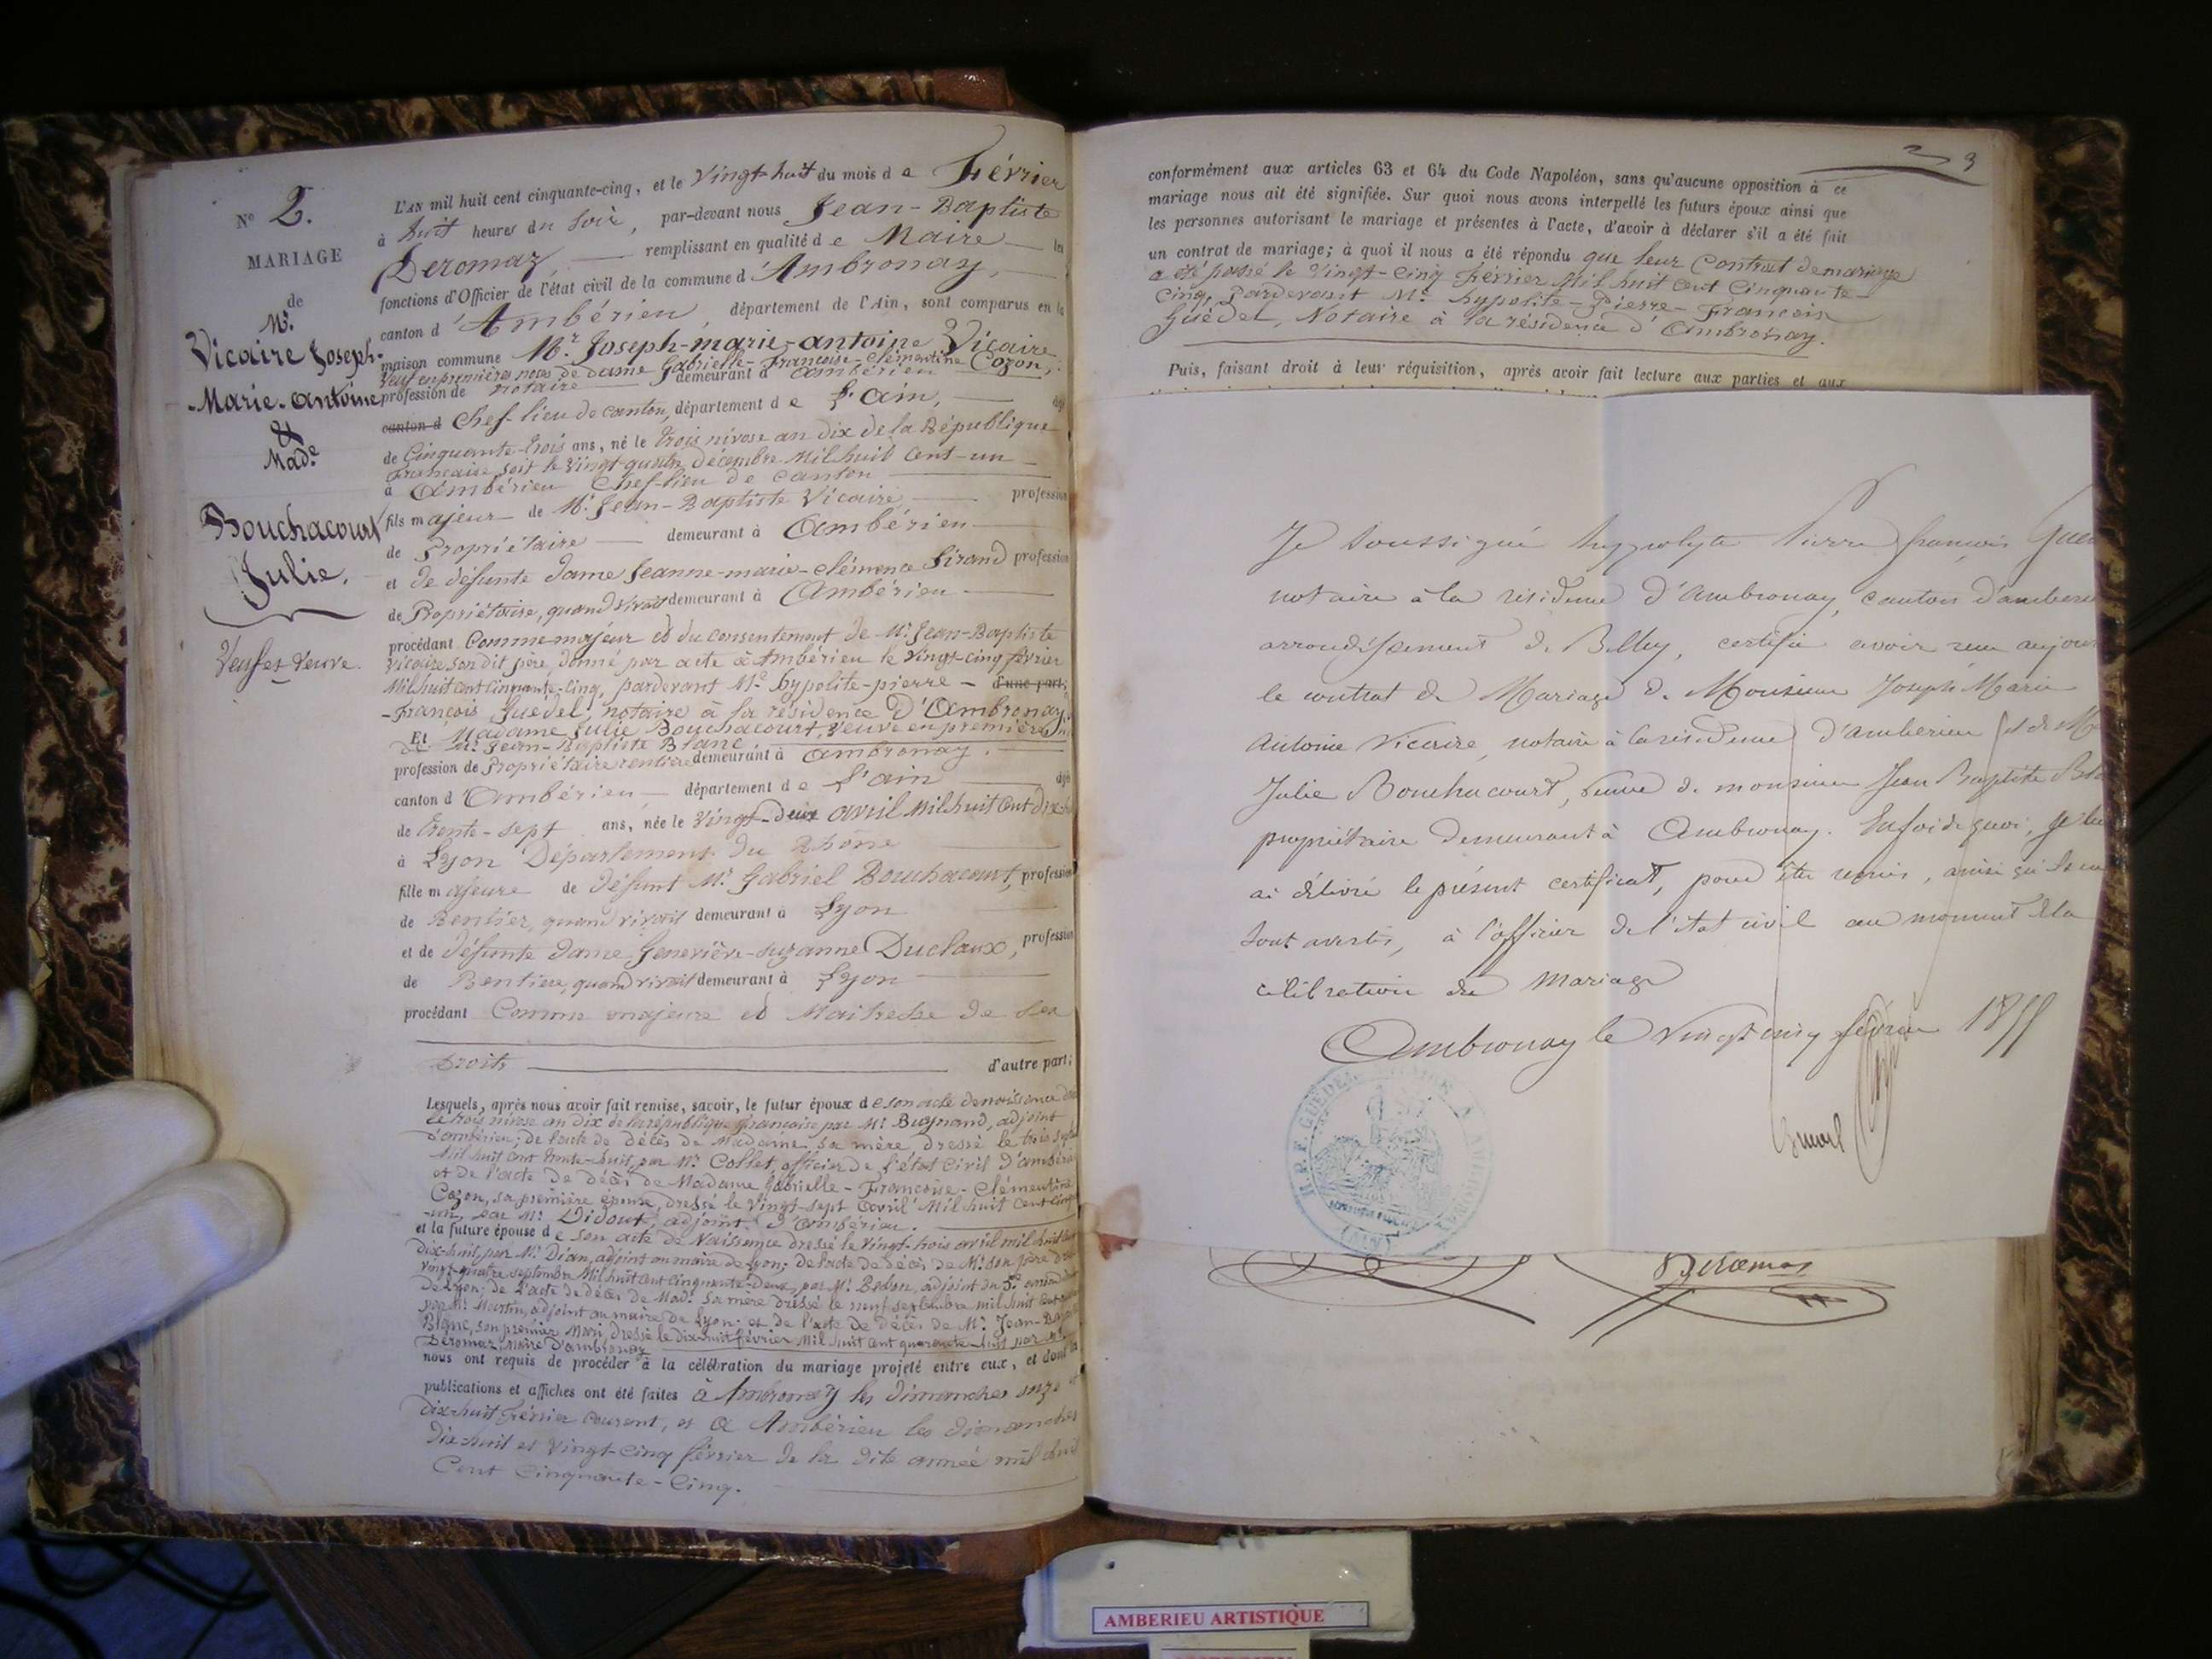 N° 2.
MARIAGE
de
Mr.
Vicaire Joseph-
-Marie-antoine
&
Made
Bouchacourt
Julie.
Veuf et Veuve.
L'AN mil huit cent cinquante-cinq, et le Vingt-huit du mois de Février
à huit heures du soir, par-devant nous Jean-Baptiste
Deromaz, remplissant en qualité de Maire les
fonctions d'Officier de l'état civil de la commune d'Ambronay,
canton d'Ambérieu, département de l'Ain, sont comparus en la
maison commune Mr. Joseph-marie-antoine Vicaire,
Veuf en premières noces de dame Gabrielle-Françoise-Clémentine Cozon,
profession de notaire demeurant à Ambérieu
canton d Chef-lieu de canton, département de L'Ain, âgé
de Cinquante-trois ans, né le trois nivose an dix de la République
Française, soit le Vingt-quatre décembre Mil huit Cent-un
à Ambérieu Chef-lieu de Canton
fils majeur de Mr. Jean-Baptiste Vicaire profession
de Propriétaire demeurant à Ambérieu
et de défunte dame Jeanne-marie-clémence Sirand profession
de Propriétaire, quand vivait demeurant à Ambérieu
procédant Comme majeur et du consentement de Mr. Jean-Baptiste
Vicaire son dit père, donné par acte à Ambérieu le Vingt-cinq février
Mil huit cent cinquante-cinq, pardevant Me. hypolite-pierre - d'une part;
-François Guédel, notaire à la résidence d'Ambronay,
Et Madame Julie Bouchacourt, Veuve en premières
de Mr. Jean-Baptiste Blanc
profession de Propriétaire rentière demeurant à Ambronay.
canton d'Ambérieu département de L'ain âgé
de trente-sept ans, née le Vingt-deux avril Mil huit Cent dix-
à Lyon Département du Rhône
fille majeure de défunt Mr. Gabriel Bouchacourt, profession
de Rentier, quand vivait demeurant à Lyon
et de défunte dame Geneviève-suzanne Duclaux, profession
de Rentière, quand vivait demeurant à Lyon
procédant Comme majeure et Maitresse de ses
Droits d'autre part;
Lesquels, après nous avoir fait remise, savoir, le futur époux de son acte de naissance
le trois nivose an dix de la république française par Mr. Bugnand, adjoint
d'ambérieu; de l'acte de décès de Madame sa mère dressé le trois
Mil huit cent trente-huit, par Mr. Collet, officier de l'état Civil d'ambérieu
et de l'acte de décès de Madame Gabrielle-Françoise-Clémentine
Cozon, sa première épouse, dressé le Vingt-sept avril Mil huit cent
-un, par Mr. Didout, adjoint d'Ambérieu.
et la future épouse de son acte de Naissance dressé le Vingt-trois avril mil huit cent
dix-huit, par Mr. Dian, adjoint au maire de Lyon; de l'acte de décès de Mr. son père
Vingt-quatre septembre Mil huit cent cinquante-deux, par Mr. adjoint du 5e.
de Lyon; de l'acte de décès de Made. sa mère dressé le neuf septembre mil huit cent
par Mr. Martin, adjoint au maire de Lyon; et de l'acte de décès de Mr. Jean-
Blanc, son premier Mari, dressé le dix-huit février Mil huit cent quarante-huit par Mr.
Deromaz, maire d'ambronay
nous ont requis de procéder à la célébration du mariage projeté entre eux, et dont les
publications et affiches ont été faites à Ambronay les dimanches onze et
dix-huit Février courant, et à Ambérieu les dimanches
dix-huit et Vingt-Cinq février de la dite année mil huit
Cent Cinquante-Cinq.
3
conformément aux articles 63 et 64 du Code Napoléon, sans qu'aucune opposition à ce
mariage nous ait été signifiée. Sur quoi nous avons interpellé les futurs époux ainsi que
les personnes autorisant le mariage et présentes à l'acte, d'avoir à déclarer s'il a été fait
un contrat de mariage; à quoi il nous a été répondu que leur Contrat de mariage
a été passé le Vingt-Cinq Février Mil huit Cent Cinquante-
Cinq, Pardevant Me. hypolite-Pierre-François
Guédel, Notaire à la résidence d'Ambronay.
Puis, faisant droit à leur réquisition, après avoir fait lecture aux parties et aux
Je soussigné hyppolyte Pierre françois
notaire à la résidence d'Ambronay, canton
arrondissement de Belley, certifie avoir reçu
le contrat de Mariage de Monsieur Joseph Marie
Antoine Vicaire, notaire à la résidence d'Amberieu et de
Julie Bouchacourt, veuve de monsieur Jean Baptiste
propriétaire demeurant à Ambronay. En foi de quoi, je
ai délivré le présent certificat, pour être remis, ainsi
sont avertis, à l'officier de l'état civil au moment de la
célébration du Mariage
Ambronay le vingt cinq février 1855
H. P. F. GUEDEL
(AIN)
Deromaz
AMBERIEU ARTISTIQUE